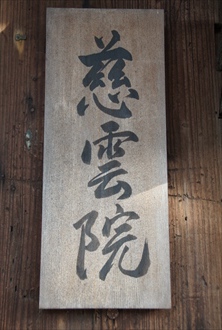 慈雲院